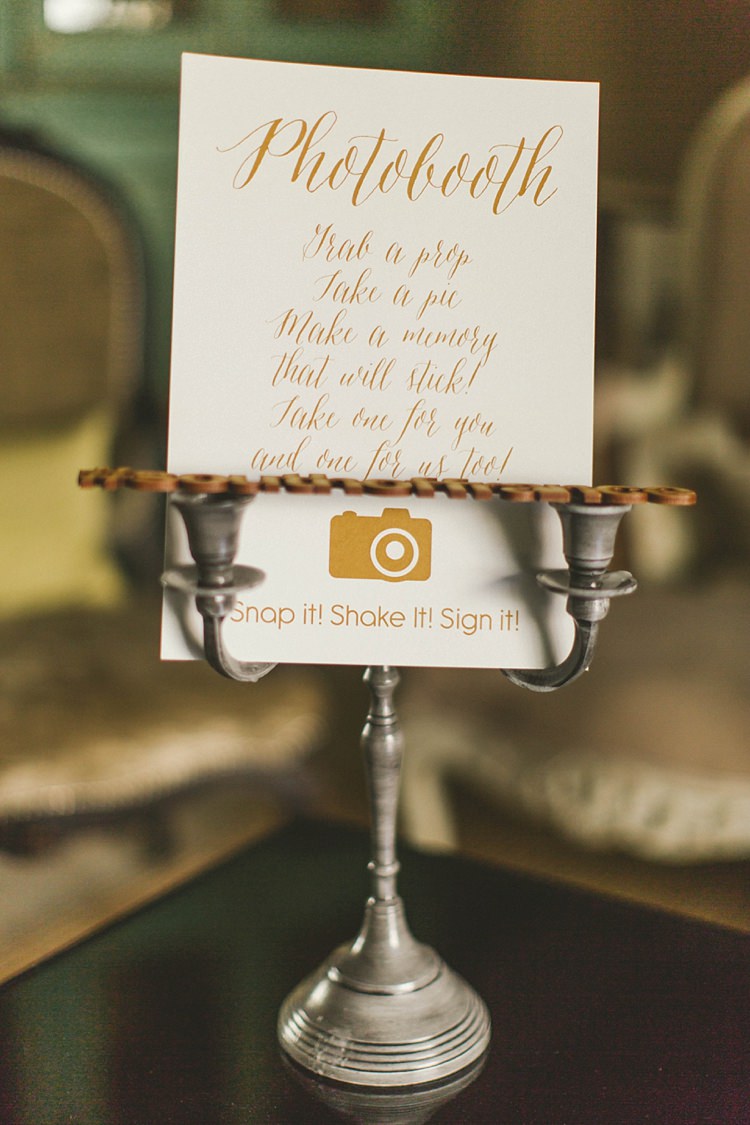 Photobooth
Grab a prop
Take a pic
Make a memory
that will stick!
Take one for you
and one for us too!
Snap it! Shake It! Sign it!